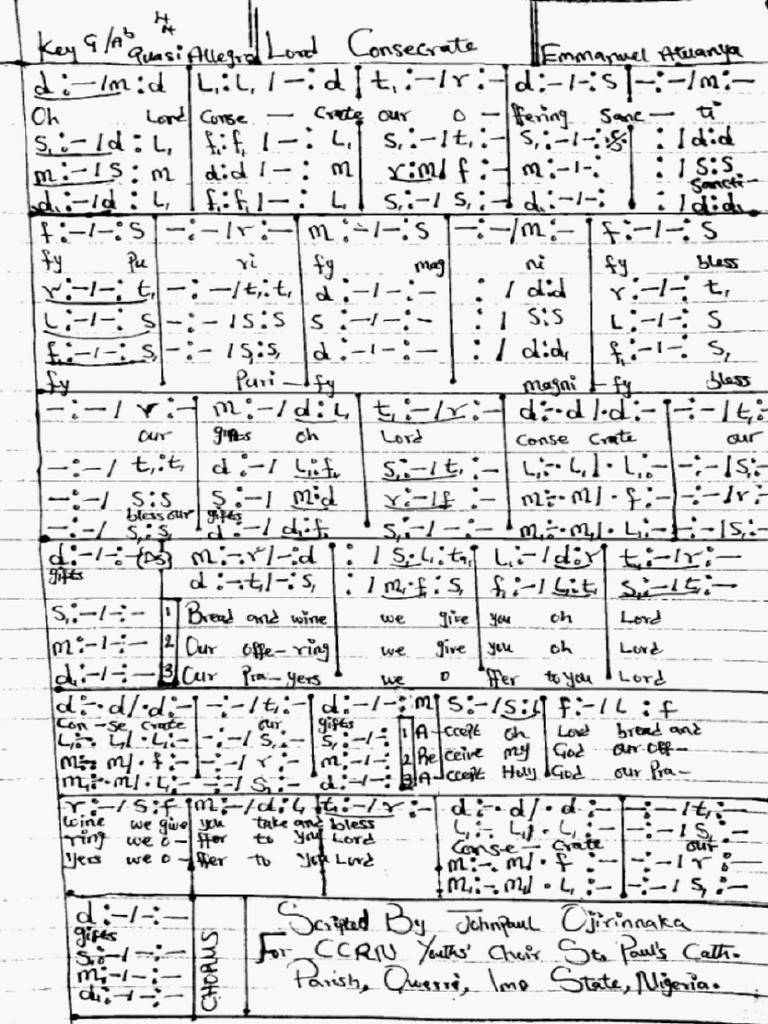 Key G/Ab 4/4 Quasi Allegro Lord Consecrate Emmanuel Atuanya
d :-/m : d | L₁ : L₁ /- : d | t₁ :-/r :- | d :-/- : S | - :-/m :-
Oh Lord Conse - crate our o - ffering Sanc - ti
S₁ :-/d : L₁ | f₁ : f₁ /- : L₁ | S₁ :-/t₁ :- | S₁ :-/- : | : / d : d
m :-/S : m | d : d /- : m | r : m / f :- | m :-/- : | : / S : S
Sancti-
d₁ :-/d : L₁ | f₁ : f₁ /- : L₁ | S₁ :-/S₁ :- | d₁ :-/- : | : / d : d₁
f :-/- : S | - :-/r :- | m :-/- : S | - :-/m :- | f :-/- : S
fy Pu ri fy mag ni fy bless
r :-/- : t₁ | - :-/t₁ : t₁ | d :-/- :- | : / d : d | r :-/- : t₁
L :-/- : S | - :-/S : S | S :-/- :- | : / S : S | L :-/- : S
f₁ :-/- : S₁ | - :-/S₁ : S₁ | d :-/- :- | : / d : d₁ | f₁ :-/- : S₁
fy Puri - fy magni - fy bless
- :-/ r :- | m :-/d : L₁ | t₁ :-/r :- | d :-. d / . d :- | - :-/t₁ :-
our gifts oh Lord Conse crate our
- :-/ t₁ : t₁ | d :-/ L₁ : f₁ | S₁ :-/ t₁ :- | L₁ :-. L₁ / . L₁ :- | - :-/S₁ :-
- :-/ S : S | S :-/ m : d | r :-/f :- | m :-. m / . f :- | - :-/r :-
bless our gifts
- :-/ S₁ : S₁ | d :-/ d₁ : f₁ | S₁ :-/- :- | m₁ :-. m₁ / . L₁ :- | - :-/S₁ :-
d :-/- :- (DS) | m :-. r /- : d | : / S₁ . L₁ : t₁ | L₁ :-/d : r | t₁ :-/r :-
gifts d :-. t₁ /- : S₁ | : / m₁ . f₁ : S₁ | f₁ :-/ L₁ : t₁ | S₁ :-/t₁ :-
S₁ :-/- :- 1 Bread and wine we give you oh Lord
m :-/- :- 2 Our offe-ring we give you oh Lord
d₁ :-/- :- 3 Our Pra-yers we o ffer to you Lord
d :-. d / . d :- | - :-/t₁ :- | d :-/- : m | S :-/S : L | f :-/L : f
Con-se crate our gifts 1 A-ccept oh Lord bread and
L₁ :-. L₁ / . L₁ :- | - :-/S₁ :- | S₁ :-/- :-
m :-. m / . f :- | - :-/ r :- | m :-/- :- 2 Re ceive my God our Off-
m₁ :-. m₁ / . L₁ :- | - :-/S₁ :- | d₁ :-/- :- 3 A-ccept Holy God our Pra-
r :-/S : f | m :-/d : L₁ | t₁ :-/r :- | d :-. d / . d :- | - :-/t₁ :-
wine we give you take and bless L₁ :-. L₁ / . L₁ :- | - :-/S₁ :-
ring we o-ffer to you Lord Conse-crate our
yers we o-ffer to you Lord m :-. m / . f :- | - :-/r :-
m₁ :-. m₁ / . L₁ :- | - :-/S₁ :-
d :-/- :-
gifts
S₁ :-/- :-
m :-/- :-
d₁ :-/- :-
CHORUS
Scripted By Johnpaul Ojirinnaka
For CCRN Youths' Choir St. Paul's Cath.
Parish, Owerri, Imo State, Nigeria.